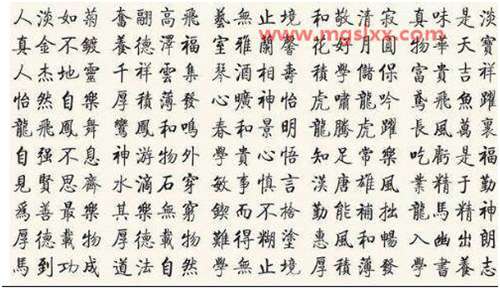 人淡如菊 奮翮高飛 藝無止境 和敬清寂 真味是淡
真金不鍍 養德澤福 室雅蘭馨 花好月圓 物華天寶
人杰地靈 千祥雲集 琴酒相壽 好學儲保 富貴吉祥
怡然自樂 厚積薄發 心曠神怡 虎嘯龍吟 鳶飛魚躍
龍飛鳳舞 鸞鳳和鳴 春和景明 龍騰虎躍 長風萬裏
自强不息 神游物外 學貴心悟 知足常樂 吃虧是福
見賢思齊 水滴石穿 敏事慎言 漢唐雄風 業精于勤
爲善最樂 其樂無窮 鍥而不捨 勤能補拙 龍馬精神
厚德載物 厚德載物 難得糊塗 惠風和暢 入幽出朗
馬到功成 道法自然 學無止境 厚積薄發 學書養志
www.mgslxx.com